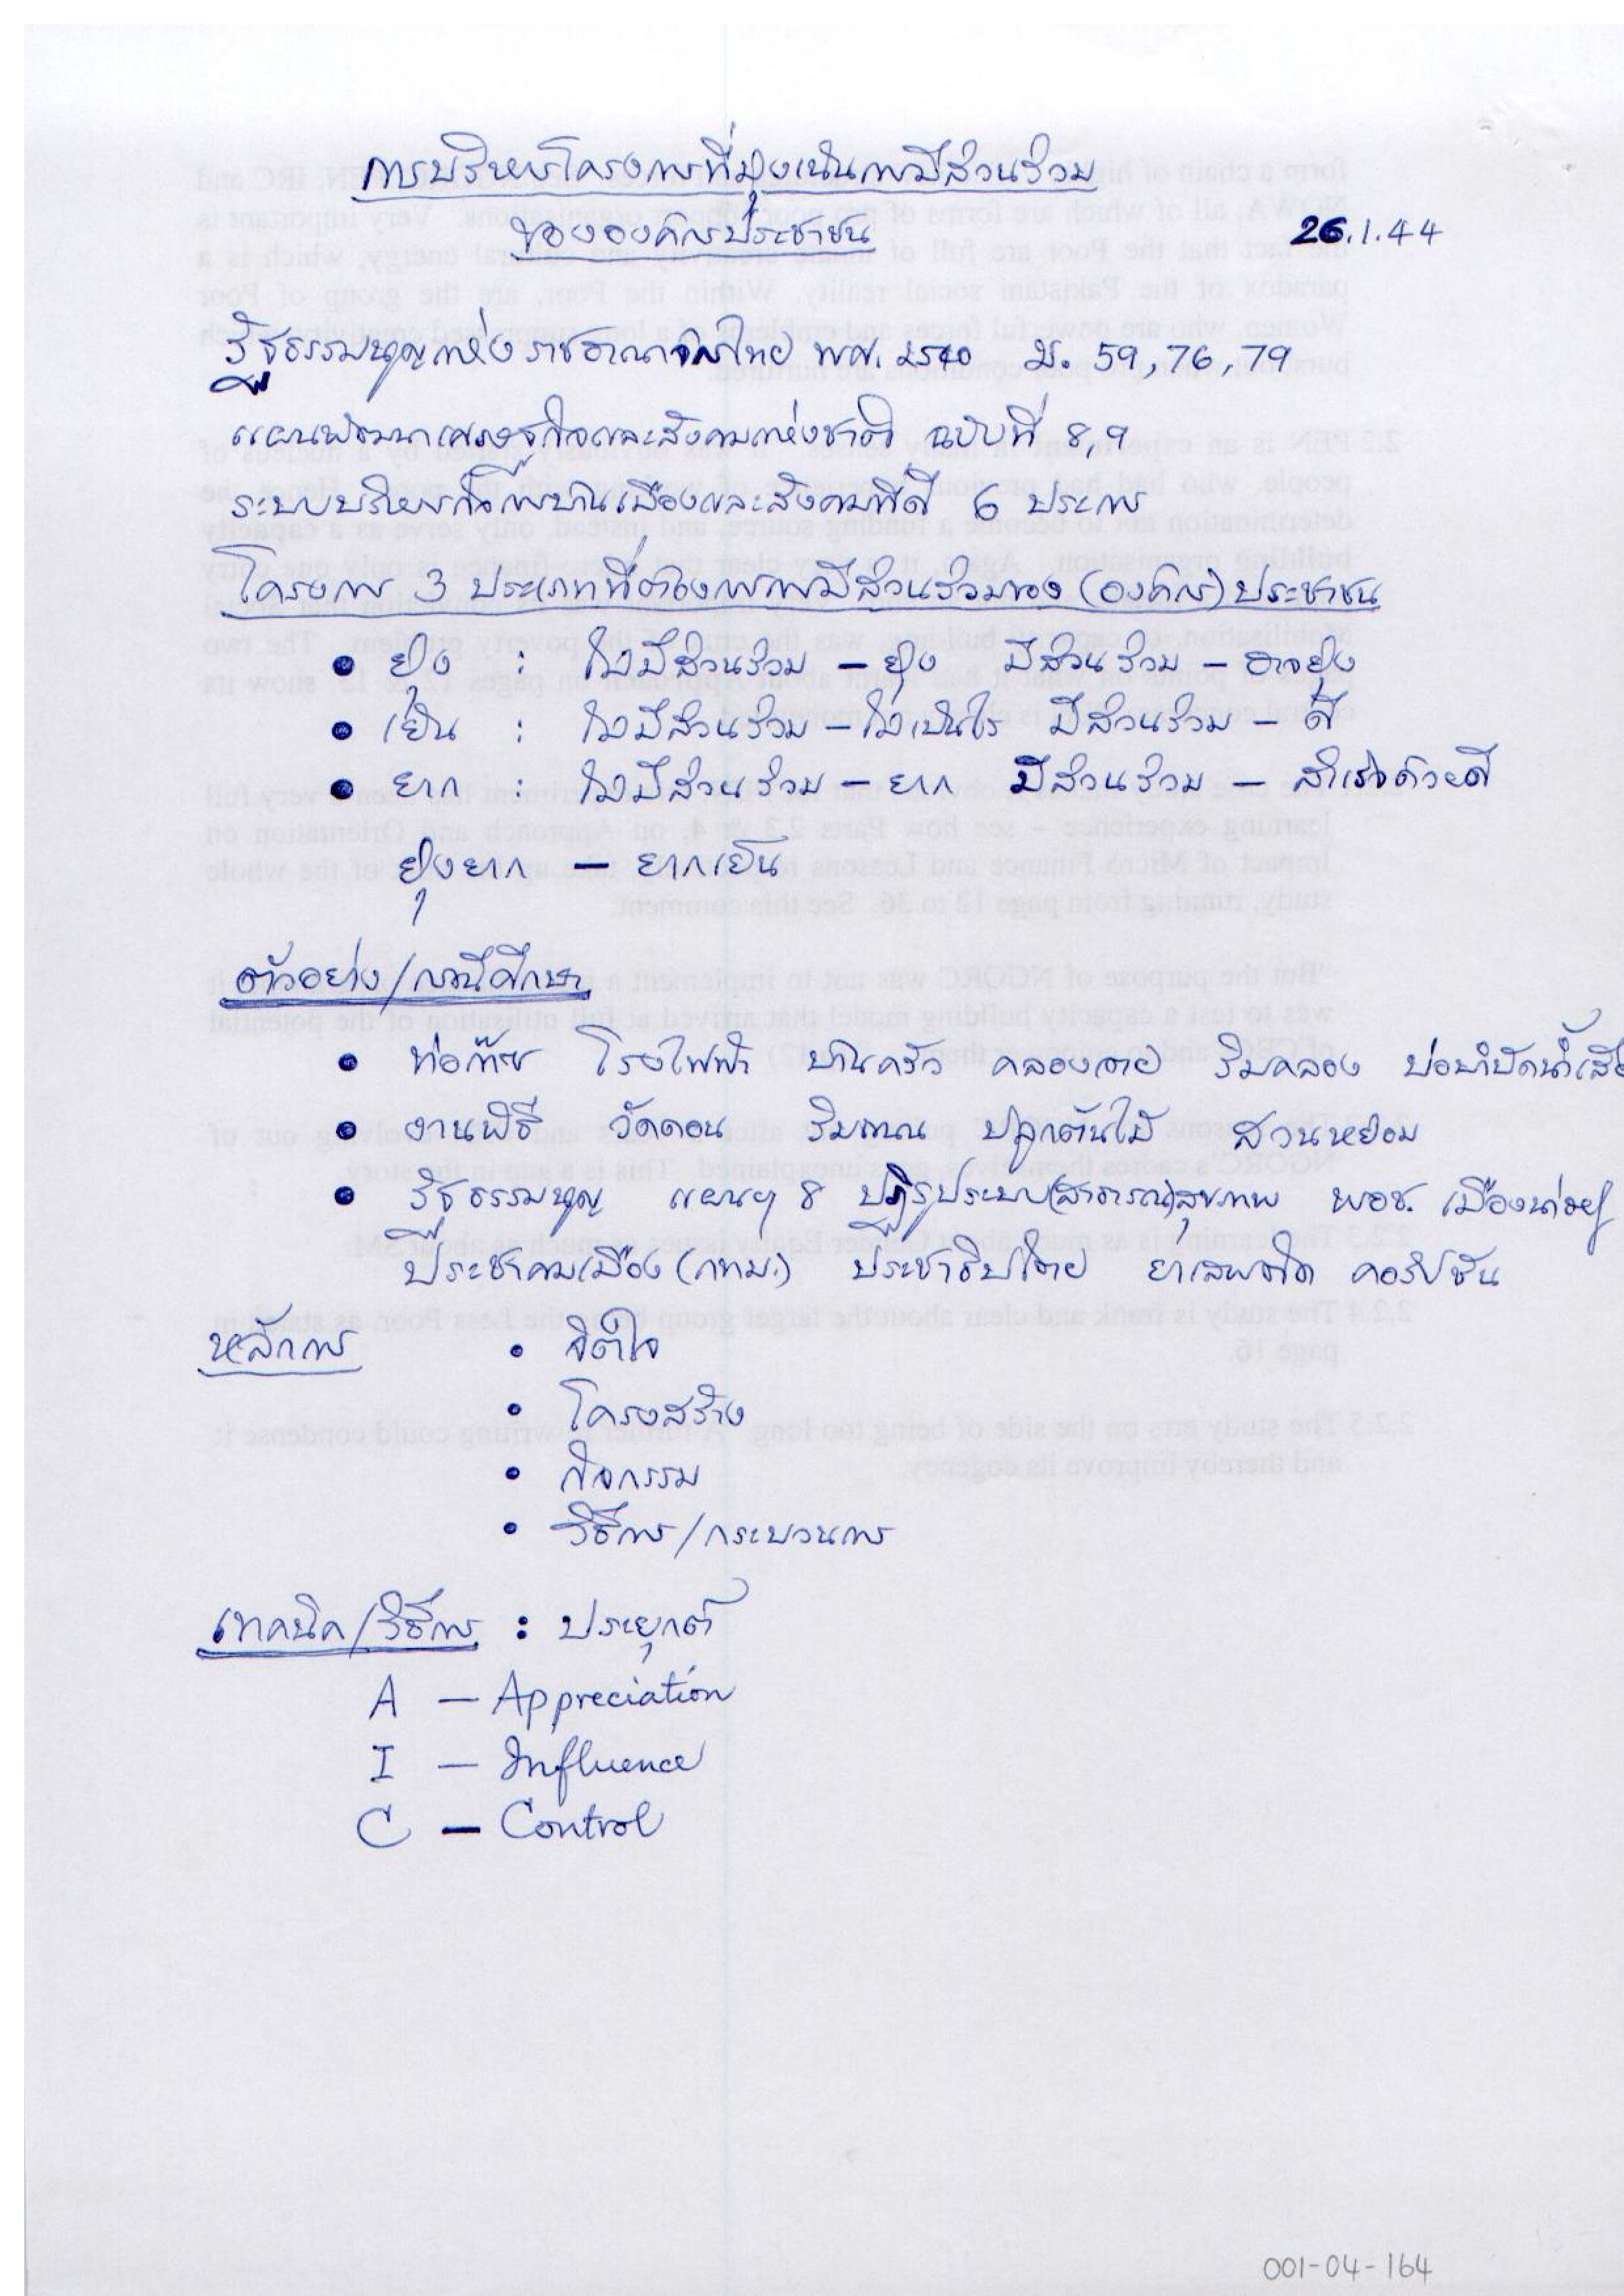 การบริหารโครงการที่มุ่งเน้นการมีส่วนร่วม
ขององค์กรประชาชน
26.1.44
รัฐธรรมนูญแห่งราชอาณาจักรไทย พศ. 2540 ม. 59, 76, 79
แผนพัฒนาเศรษฐกิจและสังคมแห่งชาติ ฉบับที่ 8, 9
ระบบบริหารกิจการบ้านเมืองและสังคมที่ดี 6 ประการ
โครงการ 3 ประเภทที่ต้องการการมีส่วนร่วมของ (องค์กร) ประชาชน
• ยุ่ง : ไม่มีส่วนร่วม – ยุ่ง มีส่วนร่วม – อาจยุ่ง
• เย็น : ไม่มีส่วนร่วม – ไม่เป็นไร มีส่วนร่วม – ดี
• ยาก : ไม่มีส่วนร่วม – ยาก มีส่วนร่วม – สำเร็จด้วยดี
ยุ่งยาก – ยากเย็น
ตัวอย่าง/กรณีศึกษา
• ท่อก๊าซ โรงไฟฟ้า บ้านครัว คลองเตย ริมคลอง บ่อบำบัดน้ำเสีย
• งานพิธี วัดดอน ริมถนน ปลูกต้นไม้ สวนหย่อม
• รัฐธรรมนูญ แผนฯ 8 ปฏิรูประบบ(สาธารณ)สุขภาพ พอช. เมืองน่าอยู่
ประชาคมเมือง (กทม.) ประชาธิปไตย ยาเสพติด คอรัปชั่น
หลักการ
• จิตใจ
• โครงสร้าง
• กิจกรรม
• วิธีการ/กระบวนการ
เทคนิค/วิธีการ : ประยุกต์
A – Appreciation
I – Influence
C – Control
001-04-164